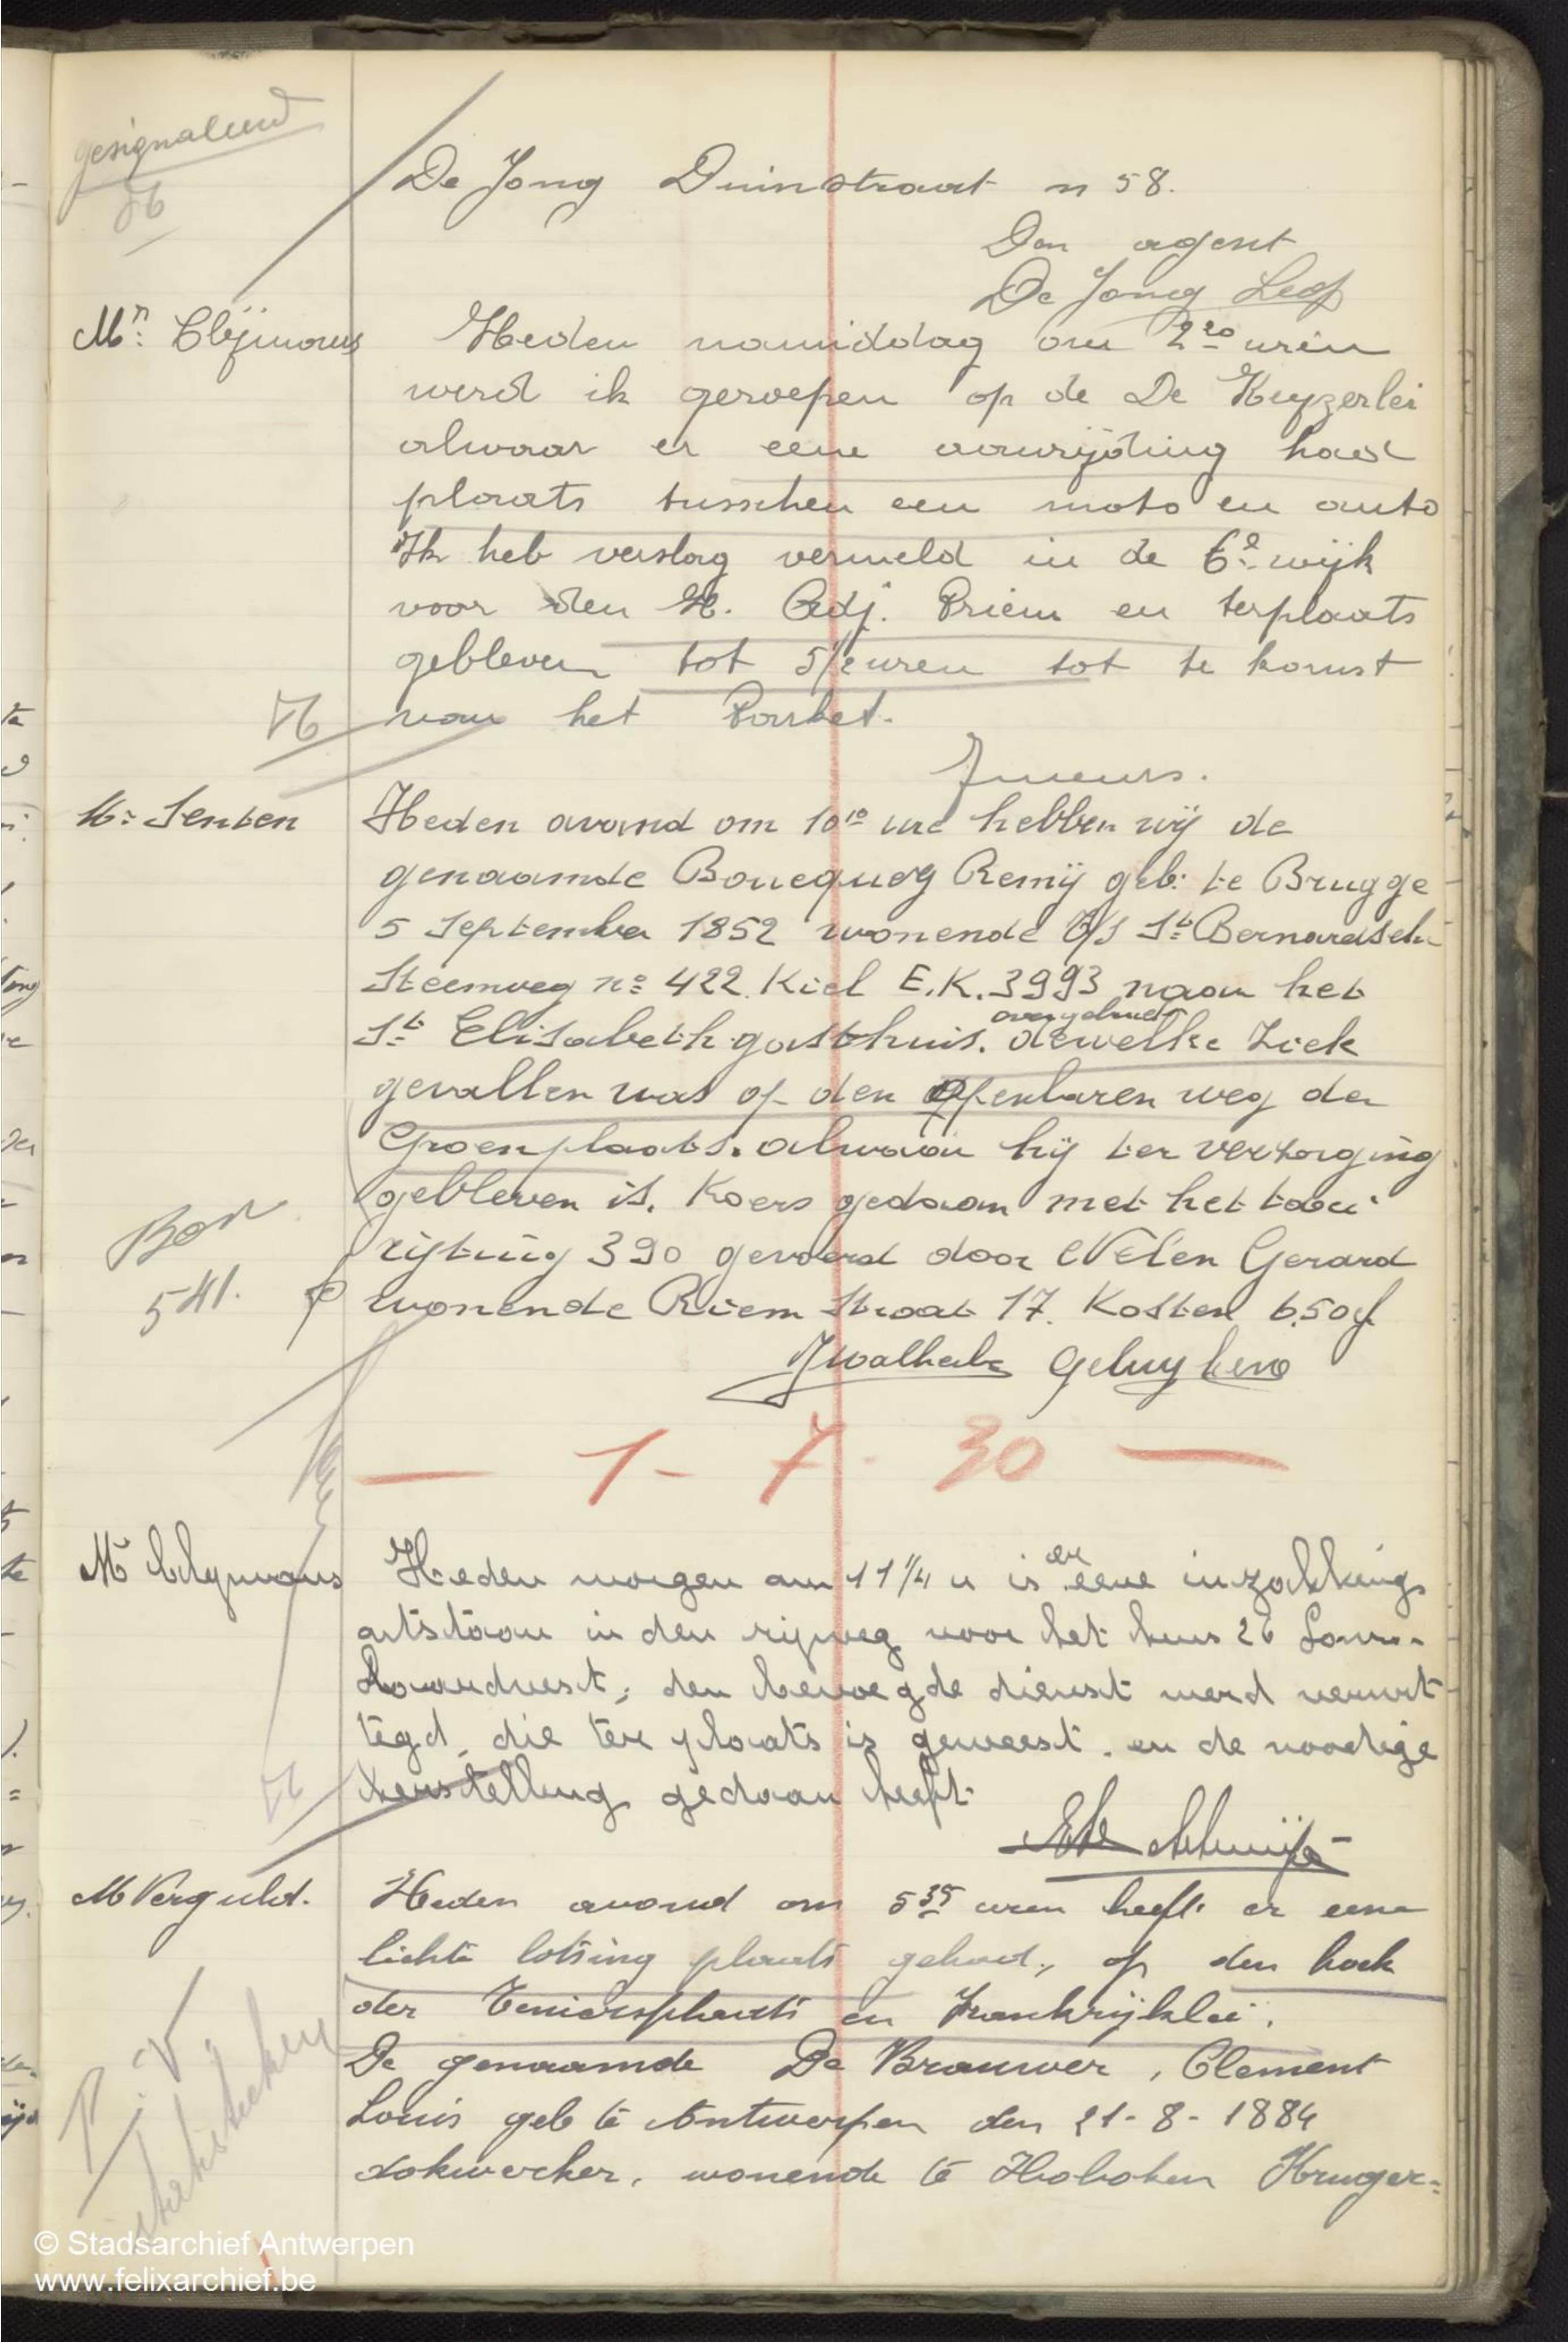 gesignaleerd
De Jong Duinstraat n 58.
Den agent
De Jong Leop
Mr: Clÿmans
Heden namiddag om 2 20 uren
werd ik geroepen op de De Keyzerlei
alwaar er eene aanrijding had
plaats tusschen een moto en auto
Ik heb verslag vermeld in de 6e wijk
voor den H. Adj. Priem en terplaats
gebleven tot 5 1/2 uren tot te komst
van het Parket.
M: Senten
Heden avond om 10 10 ure hebben wij de
genaamde Boucquey Remÿ geb: te Brugge
5 September 1852 wonende St Bernardsche
Steenweg no: 422. Kiel E.K. 3993 naar het
overgebracht
St Elisabeth gasthuis. dewelke Ziek
gevallen was op den Openbaren weg der
Groenplaats. alwaar hij ter verzorging
gebleven is. Koers gedaan met het taxi
Bon
rijtuig 390 gevoerd door Nelen Gerard
541.
wonende Riem Straat 17. Kosten 6.50 f
— 1 - 7 - 30 —
Mr Clymans
Heden morgen om 11 1/4 u is er eene inzakking
ontstaan in den rijweg voor het huis 26 Lom-
baardvest; den bevoegde dienst werd verwit
tegd, die ter plaats is geweest. en de noodige
herstelling gedaan heeft
M Verguld.
Heden avond om 5 35 uren heeft er eene
lichte botsing plaats gehad, op den hoek
der Teniersplaats en Frankrijklei.
P.V.
De genaamde De Brauwer, Clement
Louis geb te Antwerpen den 21-8-1884
dokwerker, wonende te Hoboken Kruger=
© Stadsarchief Antwerpen
www.felixarchief.be